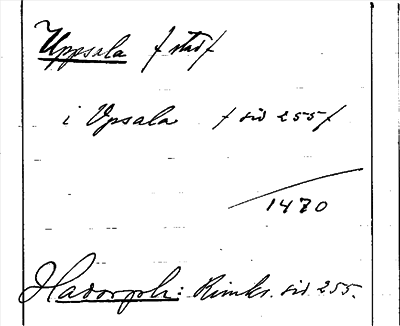 Uppsala / stad /
i Upsala / sid 255 /
1470
Hadorph: Rimkr. sid 255.